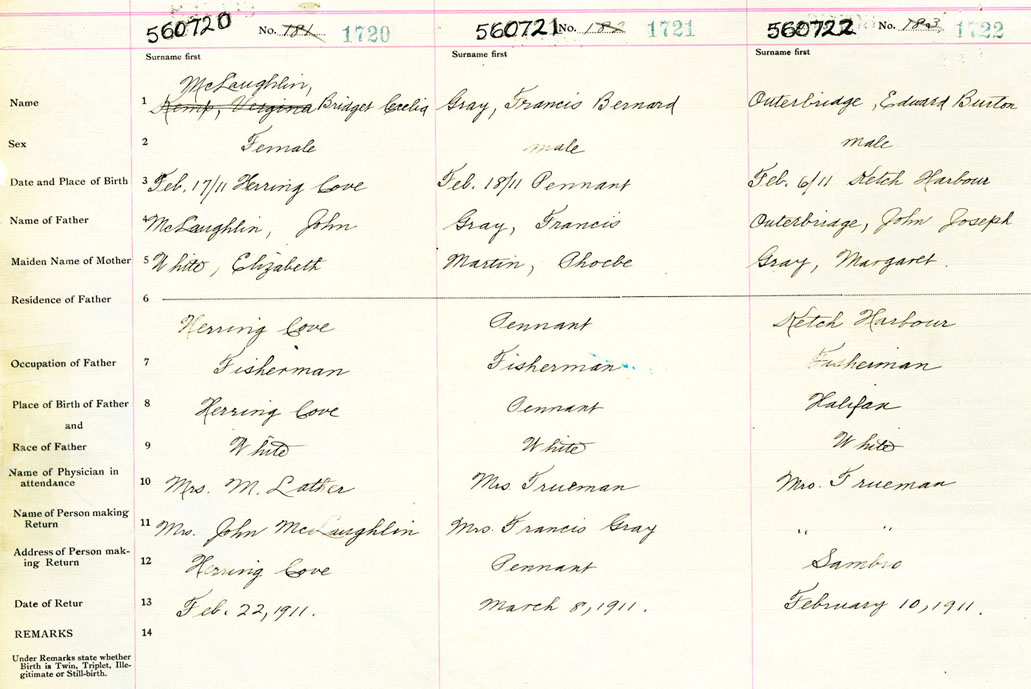 560720 No. 181 1720 560721 No. 182 1721 560722 No. 183 1722
Surname first Surname first Surname first
McLaughlin,
Name 1 Kemp, Vergina Bridget Cecelia Gray, Francis Bernard Outerbridge, Edward Burton
Sex 2 Female male male
Date and Place of Birth 3 Feb. 17/11 Herring Cove Feb. 18/11 Pennant Feb. 6/11 Ketch Harbour
Name of Father 4 McLaughlin, John Gray, Francis Outerbridge, John Joseph
Maiden Name of Mother 5 White, Elizabeth Martin, Phoebe Gray, Margaret.
Residence of Father 6
Herring Cove Pennant Ketch Harbour
Occupation of Father 7 Fisherman Fisherman Fisherman
Place of Birth of Father 8 Herring Cove Pennant Halifax
and
Race of Father 9 White White White
Name of Physician in
attendance 10 Mrs. M. Lather Mrs. Trueman Mrs. Trueman
Name of Person making
Return 11 Mrs. John McLaughlin Mrs. Francis Gray " "
Address of Person mak-
ing Return 12 Herring Cove Pennant Sambro
Date of Retur 13 Feb. 22, 1911. March 8, 1911. February 10, 1911.
REMARKS 14
Under Remarks state whether
Birth is Twin, Triplet, Ille-
gitimate or Still-birth.